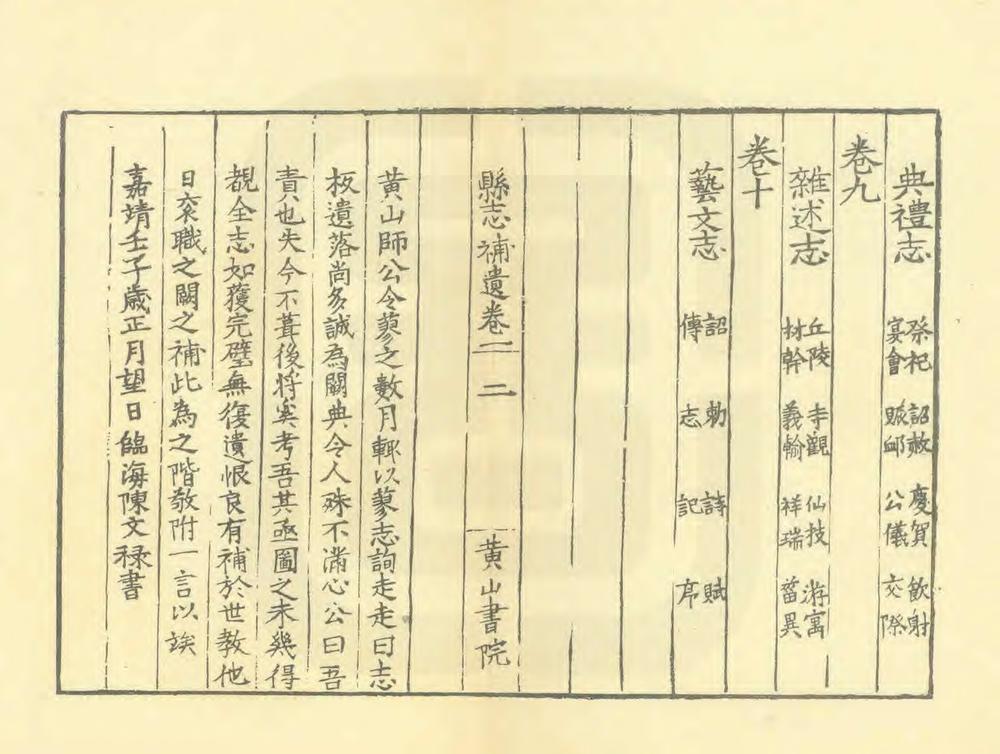 典禮志
祭祀 詔赦 慶賀 飲射
宴會 賑卹 公儀 交際
卷九
雜述志
丘陵 寺觀 仙技 游寓
材幹 義輸 祥瑞 菑異
卷十
藝文志
詔 勅 詩 賦
傳 志 記 序
縣志補遺卷一 二 黃山書院
黃山師公令蓼之數月輒以蓼志詢走走曰志
板遺落尚多誠為闕典令人殊不滿心公曰吾
責也失今不葺後將奚考吾其亟圖之未幾得
覩全志如獲完璧無復遺恨良有補於世教他
日袞職之闕之補此為之階敬附一言以俟
嘉靖壬子歲正月望日臨海陳文祿書